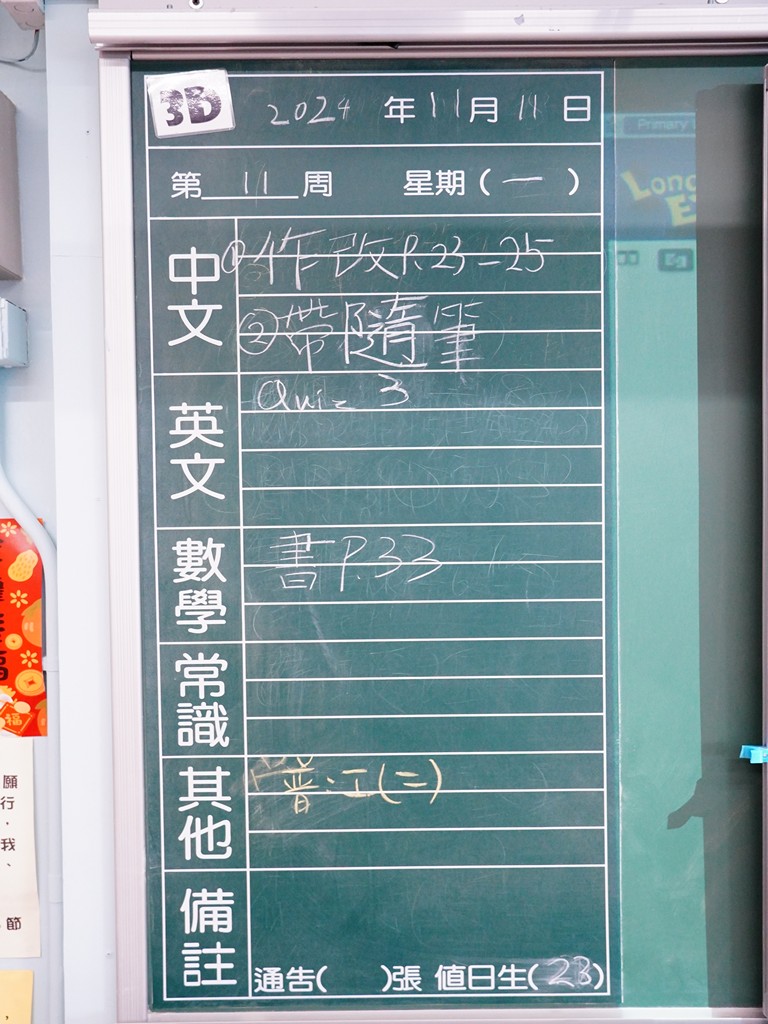 3D
2024 年 11 月 11 日
第 11 周 星期 ( 一 )
中文
① 作改 P.23-25
② 帶隨筆
英文
Quiz 3
數學
書 P.33
常識
其他
普:工(二)
備註
通告( )張 值日生(23)
Primary
願
行
，
我
、
節
福